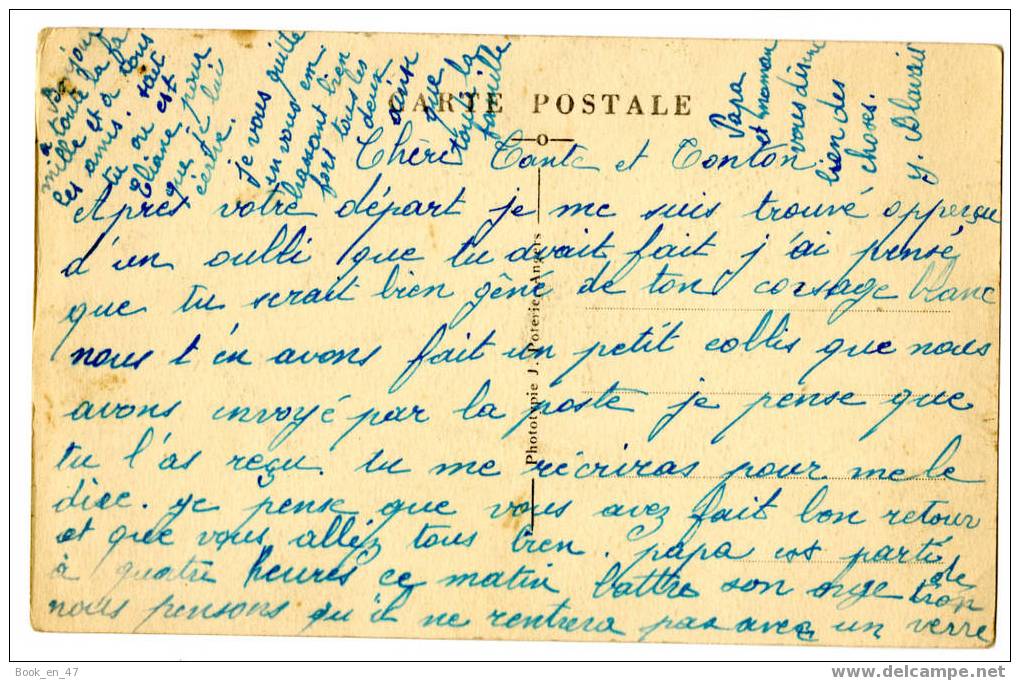 CARTE POSTALE
Chère Tante et Tonton
Après votre départ je me suis trouvé apperçue
d'un oubli que tu avait fait j'ai pensé
que tu serait bien gêné de ton corsage blanc
nous t'en avons fait un petit collis que nous
avons envoyé par la poste je pense que
tu l'as reçu. tu me récriras pour me le
dire. je pense que vous avez fait bon retour
et que vous alliez tous bien. papa est parti
à quatre heures ce matin battre son orge
nous pensons qu'il ne rentrera pas avec un verre
de
tron
a Bonjour
a toute la fa
mille et a tous
les amis. sait
tu ou est
Eliane pour
que je lui
écrive.
je vous quitte
en vous em
brassant bien
fort tous les
deux
ainsi
que
toute la
famille
Papa
et maman
vous dise
bien des
choses.
Y.
Phototypie J. Poterie, Angers
Book_en_47
www.delcampe.net